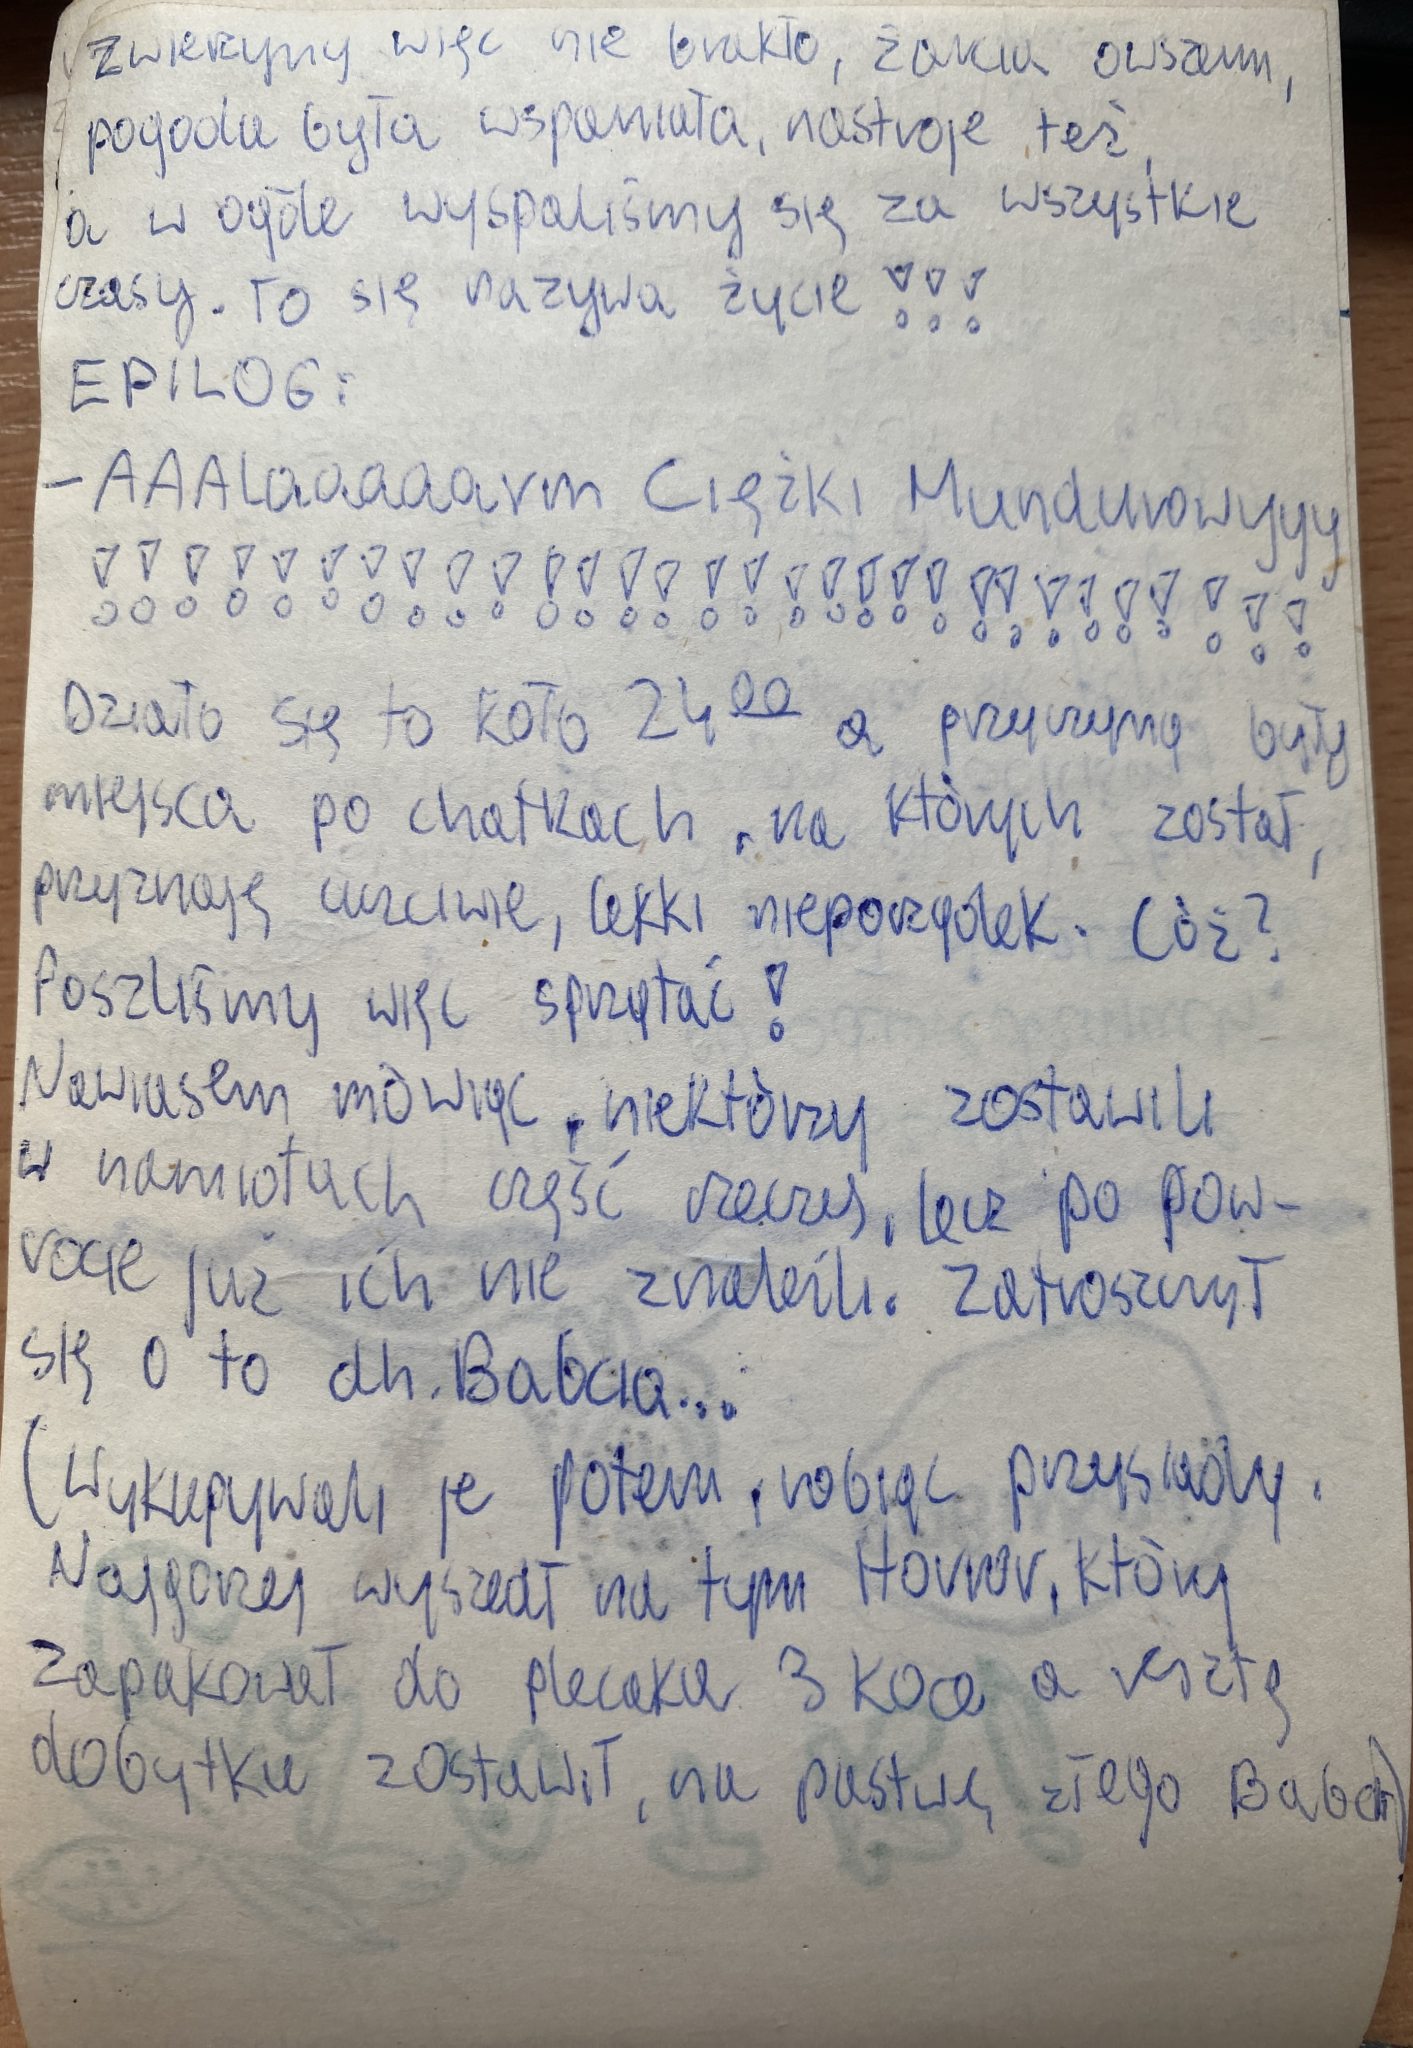 Zwierzyny więc nie brakło, żarcia owszem,
pogoda była wspaniała, nastroje też,
a w ogóle wyspaliśmy się za wszystkie
czasy. To się nazywa życie!!!
EPILOG:
- AAALaaaaarm Ciężki Mundurowyyy
!!!!!!!!!!!!!!!!!!!!!!!!!!!!!!
Działo się to koło 24⁰⁰ a przyczyną były
miejsca po chatkach, na których został,
przyznaję uczciwie, lekki nieporządek. Cóż?
Poszliśmy więc sprzątać!
Nawiasem mówiąc, niektórzy zostawili
w namiotach część rzeczy, lecz po pow-
rocie już ich nie znaleźli. Zatroszczył
się o to dh. Babcia...
(Wykupywali je potem, robiąc przysiady.
Najgorzej wyszedł na tym Horror, który
zapakował do plecaka 3 koce a resztę
dobytku zostawił, na pastwę złego Babci)